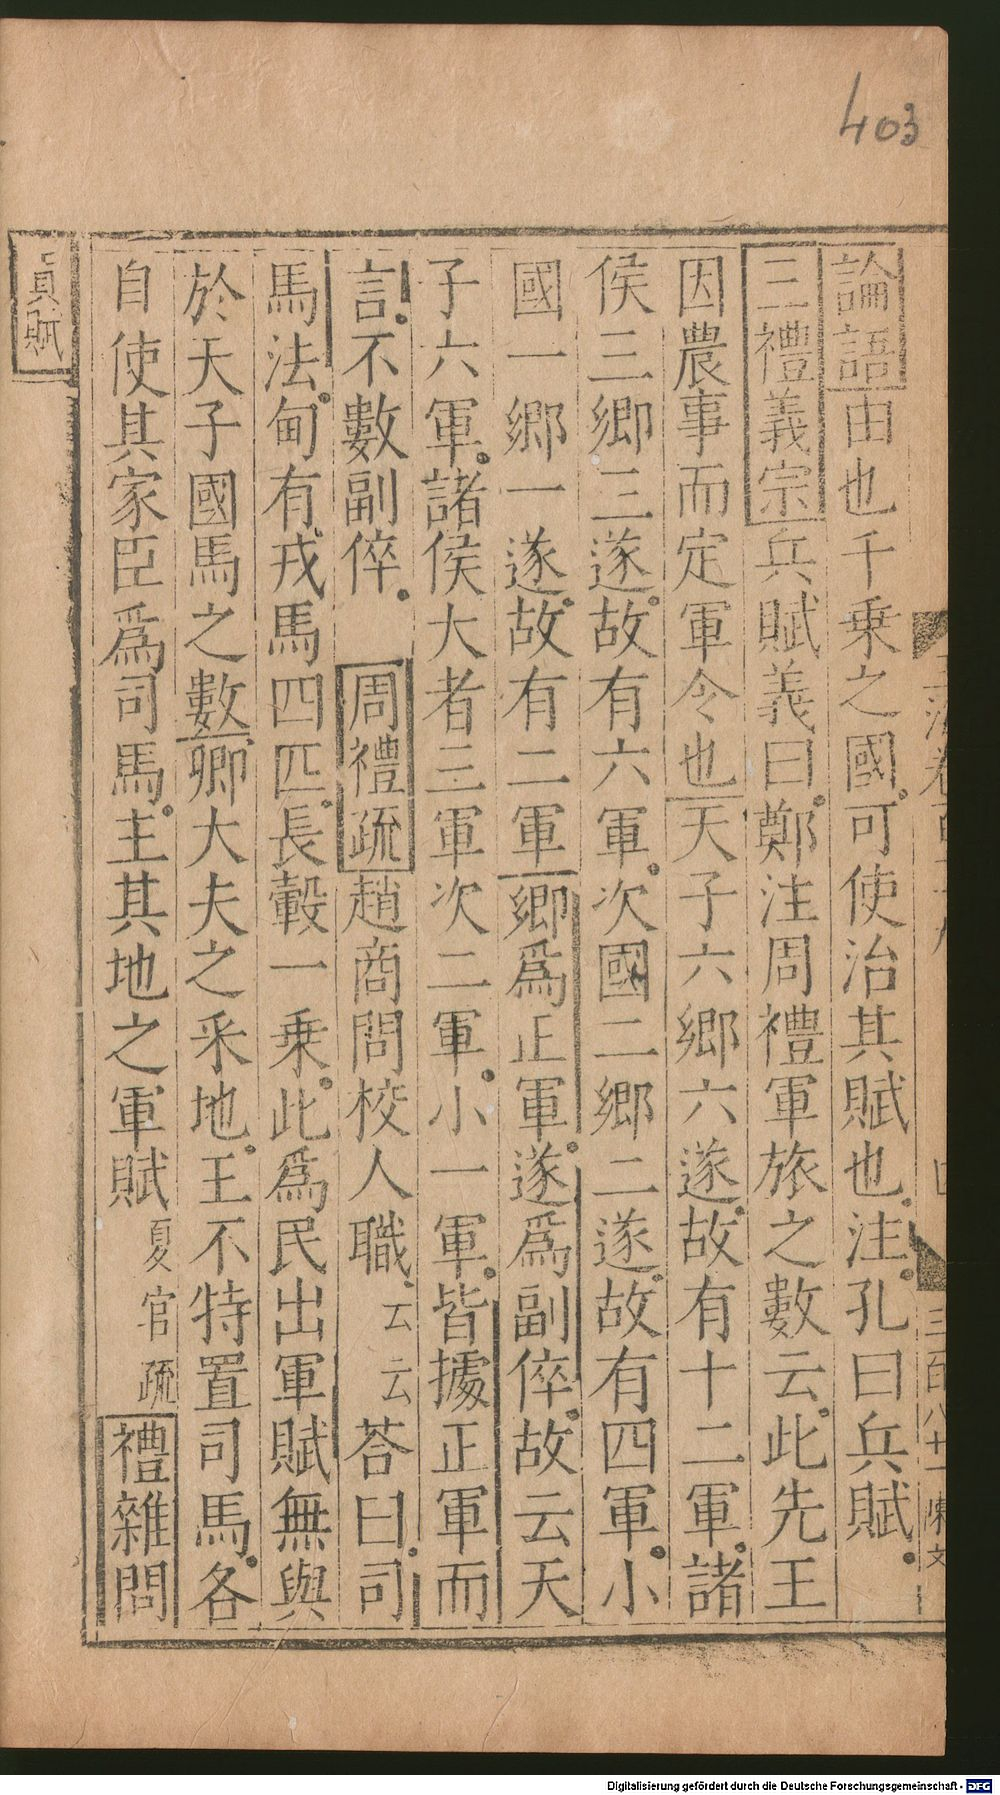 403
論語由也千乗之國可使治其賦也注孔曰兵賦
三禮義宗兵賦義曰鄭注周禮軍旅之數云此先王
因農事而定軍令也天子六鄉六遂故有十二軍諸
侯三鄉三遂故有六軍次國二鄉二遂故有四軍小
國一鄉一遂故有二軍鄉爲正軍遂爲副倅故云天
子六軍諸侯大者三軍次二軍小一軍皆據正軍而
言不數副倅 周禮疏趙商問校人職云云荅曰司
馬法甸有戎馬四匹長轂一乗此爲民出軍賦無與
於天子國馬之數卿大夫之采地王不特置司馬各
自使其家臣爲司馬主其地之軍賦夏官疏禮雜問
貢賦
三百八十一陳文
Digitalisierung gefördert durch die Deutsche Forschungsgemeinschaft - DFG